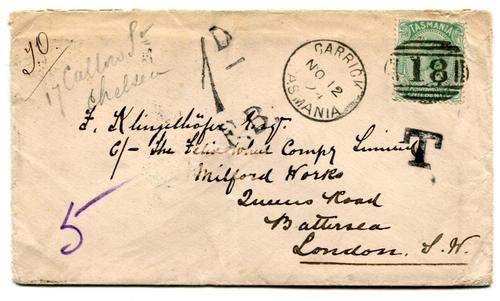 T.O
17
Chelsea
1D
CARRICK
NO 12
TASMANIA
TASMANIA
18
T
F. Klingelhöfer Esqr.
c/- The Wheel Compy Limited
Milford Works
Queens Road
Battersea
London. S.W.
5